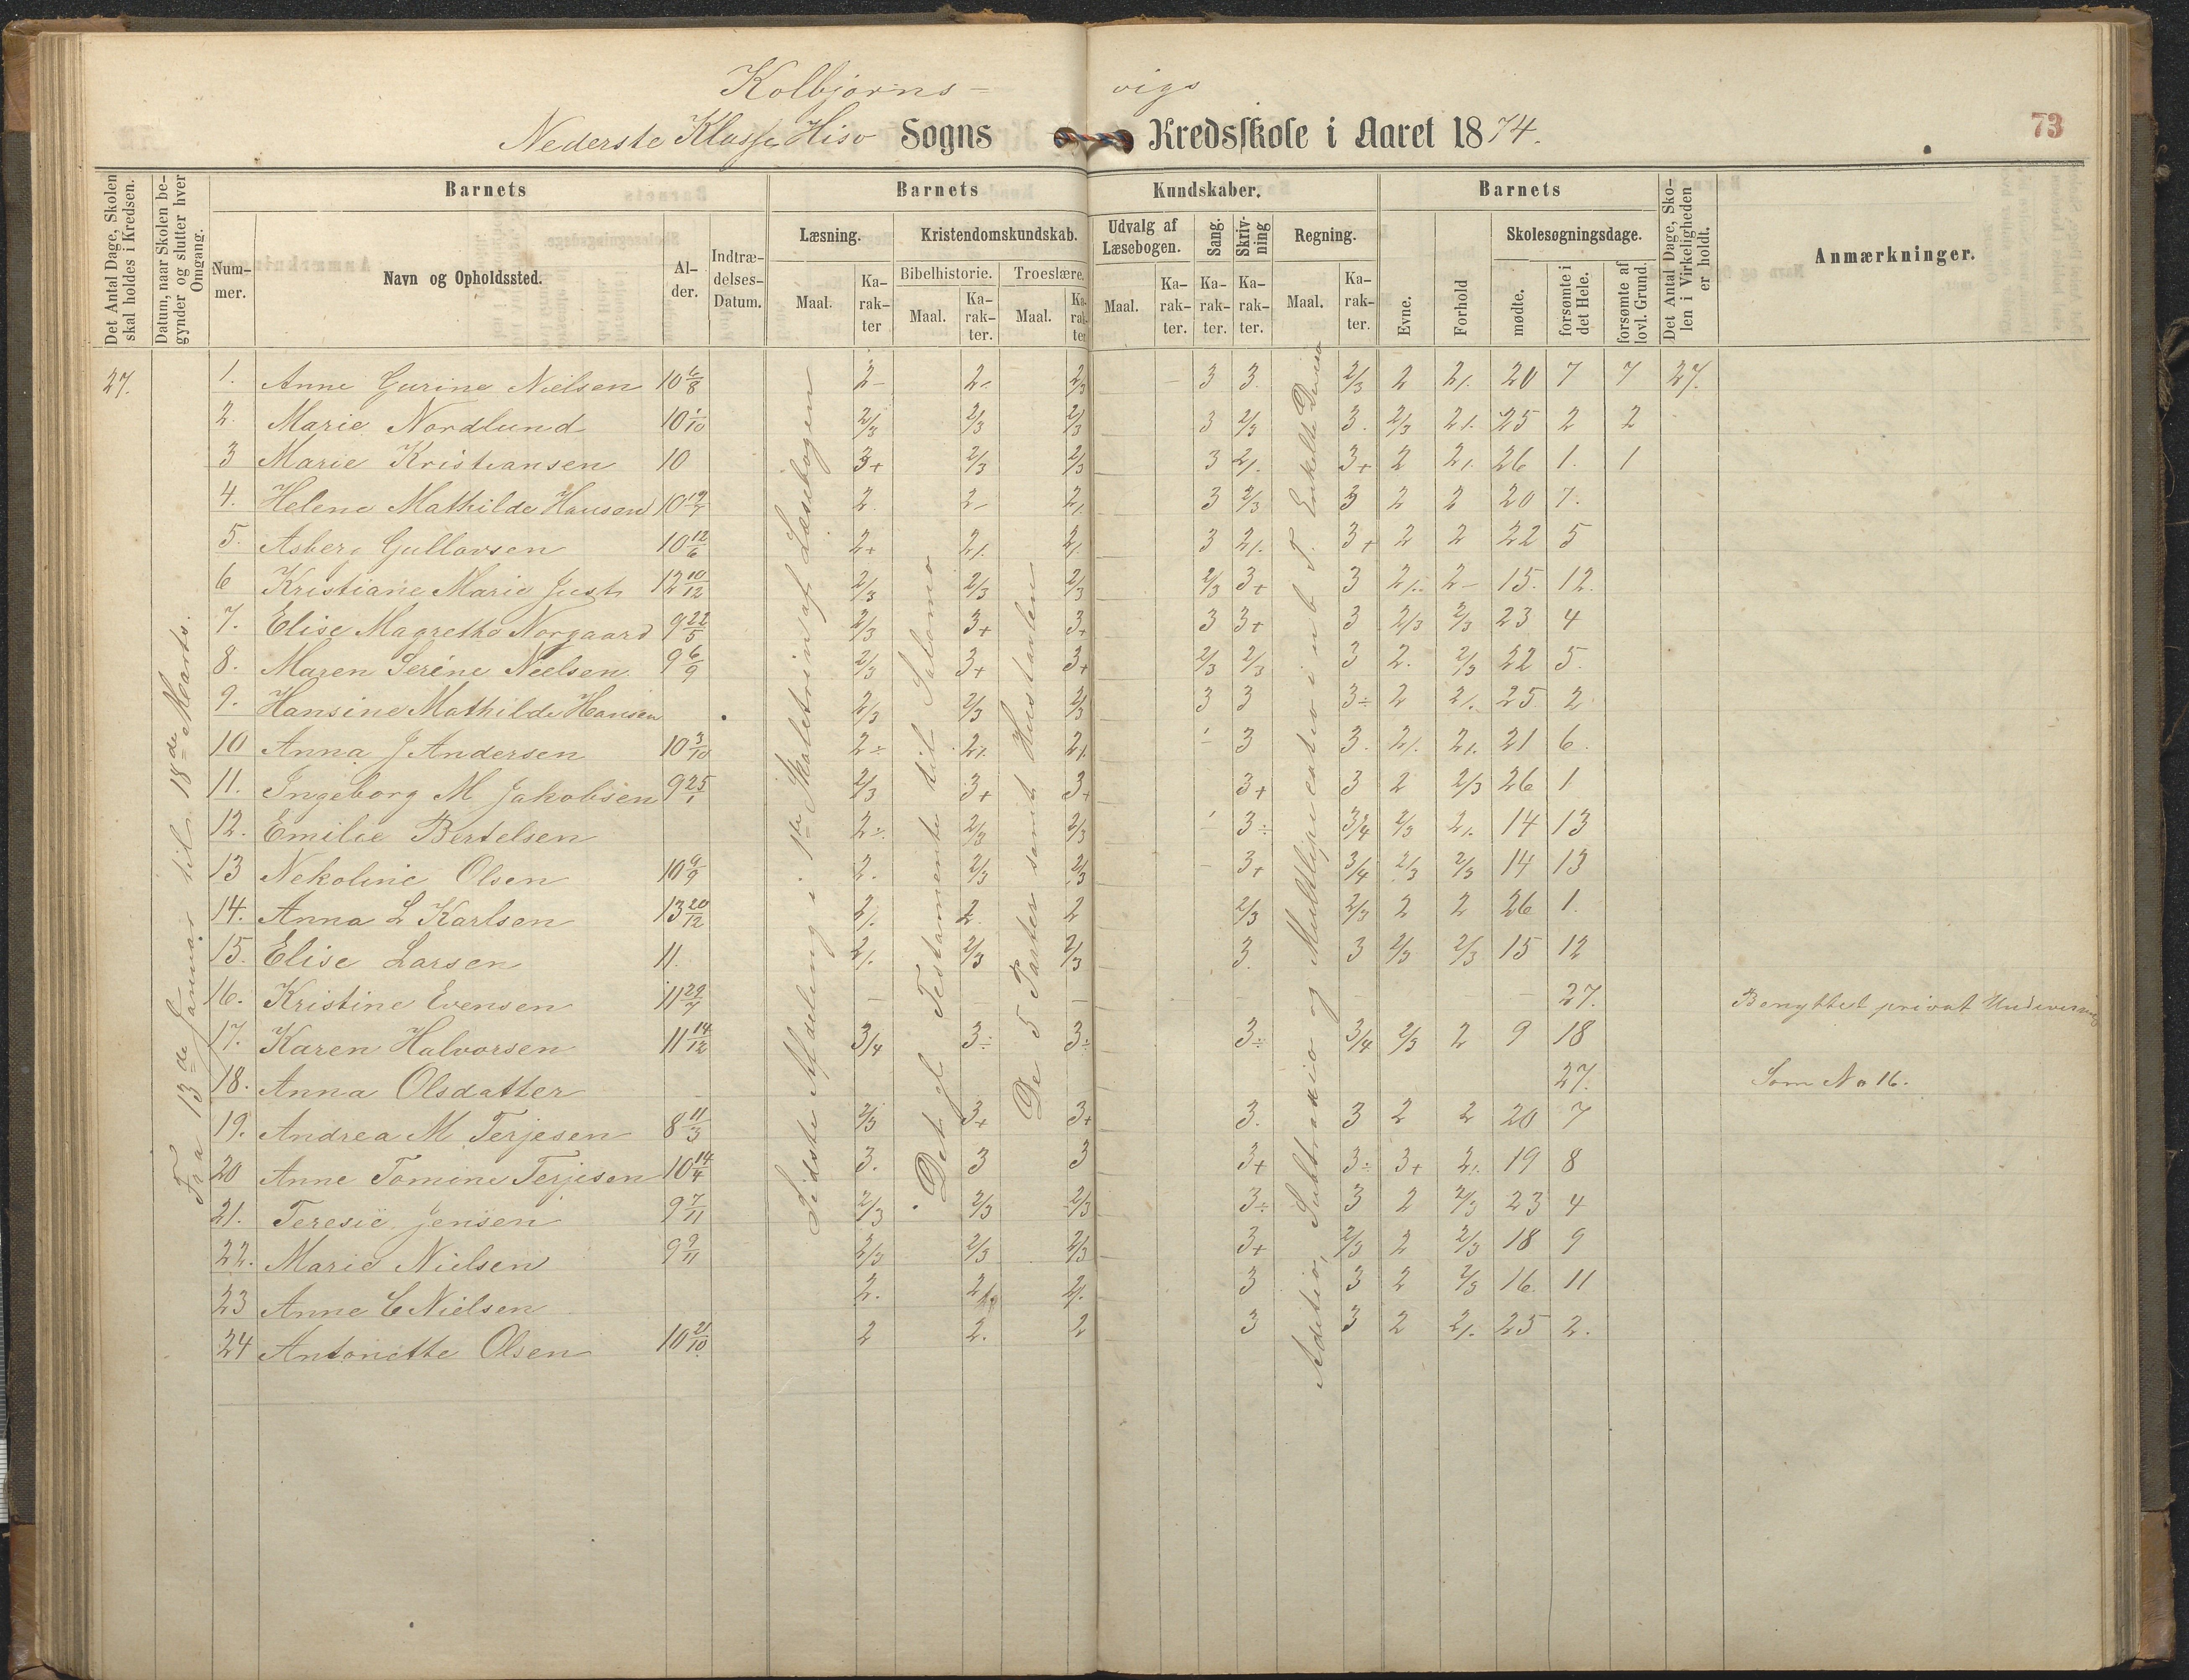 Kolbjørns- vigs
Nederste Klasse Hisø Sogns Kredsskole i Aaret 1874. 73
Det Antal Dage, Skolen skal holdes i Kredsen.
Datum, naar Skolen begynder og slutter hver Omgang.
Barnets Barnets Kundskaber. Barnets
Nummer. Navn og Opholdssted. Alder. Indtrædelses-Datum.
Læsning. Kristendomskundskab. Udvalg af Læsebogen. Sang. Skrivning Regning. Skolesøgningsdage.
Bibelhistorie. Troeslære.
Maal. Karakter Maal. Karakter. Maal. Karakter Maal. Karakter. Karakter. Karakter. Maal. Karakter. Evne. Forhold mødte. forsømte i det Hele. forsømte af lovl. Grund.
Det Antal Dage, Skolen i Virkeligheden er holdt.
Anmærkninger.
Fra 13de Januar til 18de Marts.
Sidste Afdeling i 1ste Skoletrin af Læsebogen
Det gl Testamente til Salomo
De 5 Parter samt Hustavlen
Aditio, Subtraxio og Multiplicatio i u b T. Enkelte Divisio
27. 1. Anne Gurine Nielsen 10 6/8 2- 2- 2/3 - 3 3. 2/3 2 2/. 20 7 7 27.
2. Marie Nordlund 10 1/10 2/3 2/3 2/3 3 2/3 3. 2/3 2/. 25 2 2
3 Marie Kristiansen 10 3+ 2/3 2/3 3 2/. 3+ 2 2/. 26 1. 1
4. Helene Mathilde Hansen 10 19/7 2. 2- 2/. 3 2/3 3 2 2 20 7.
5. Asberg Gullovsen 10 12/6 2+ 2/. 2/. 3 2/. 3+ 2 2 22 5
6 Kristiane Marie Just 12 10/12 2/3 2/3 2/3 2/3 3+ 3 2/. 2- 15. 12.
7. Elise Magrethe Norgaard 9 22/5 2/3 3+ 3+ 3 3+ 3 2/3 2/3 23 4
8. Maren Serine Neelsen. 9 6/9 2/3 3+ 3+ 2/3 2/3 3 2. 2/3 22 5.
9. Hansine Mathilde Hansen 2/3 2/3 2/3 3 3 3÷ 2 2/. 25 2
10 Anna J Andersen 10 3/10 2÷ 2/. 2/. - 3 3. 2/. 2/. 21 6.
11. Ingeborg M Jakobsen 9 25/1 2/3 3+ 3+ 3+ 3 2 2/3 26 1
12. Emilie Bertelsen 2÷ 2/3 2/3 - 3÷ 3/4 2/3 2/. 14 13
13 Nekoline Olsen 10 9/9 2. 2/3 2/3 - 3+ 3/4 2/3 2/3 14 13
14. Anna L Karlsen 13 20/12 2/. 2. 2 2/3 2/3 2 2 26 1.
15. Elise Larsen 11. 2/. 2/3 2/3 3. 3 2/3 2/3 15 12
16. Kristine Evensen 11 29/7 - - - - - - - 27. Benyttet privat Undervisning
17. Karen Halvorsen 11 14/12 3/4 3÷ 3÷ 3÷ 3/4 2/3 2 9 18
18. Anna Olsdatter 27. Som No 16.
19. Andrea M Terjesen 8 11/3 2/3 3+ 3+ 3. 3 2 2 20 7
20 Anne Tomine Terjesen 10 14/4 3. 3 3 3+ 3÷ 3+ 2/. 19 8
21. Teresie Jensen 9 7/11 2/3 2/3 2/3 3÷ 3 2 2/3 23 4
22. Marie Nielsen 9 9/11 2/3 2/3 2/3 3+ 2/3 2 2/3 18 9
23 Anne C Nielsen 2. 2/. 2/. 3 3 2 2/3 16. 11
24 Antonette Olsen 10 21/10 2 2. 2 3 3 2 2/. 25 2.